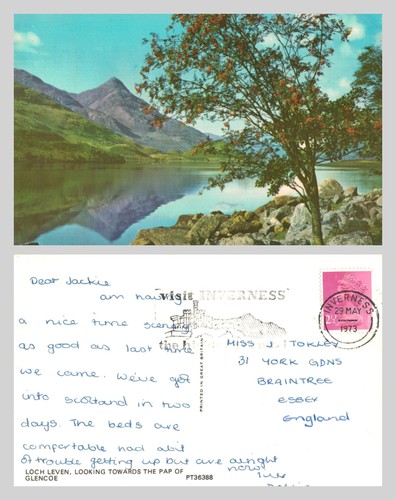 Dear Jackie
am having
a nice time scenery
as good as last time
we came. We've got
into scotland in two
days. The beds are
comfortable had abit
of trouble getting up but are alright
now
luv
visit INVERNESS
the
INVERNESS
29 MAY
1973
PRINTED IN GREAT BRITAIN
MISS J. TOKLEY
31 YORK GDNS
BRAINTREE
ESSEX
England
LOCH LEVEN, LOOKING TOWARDS THE PAP OF
GLENCOE
PT36388